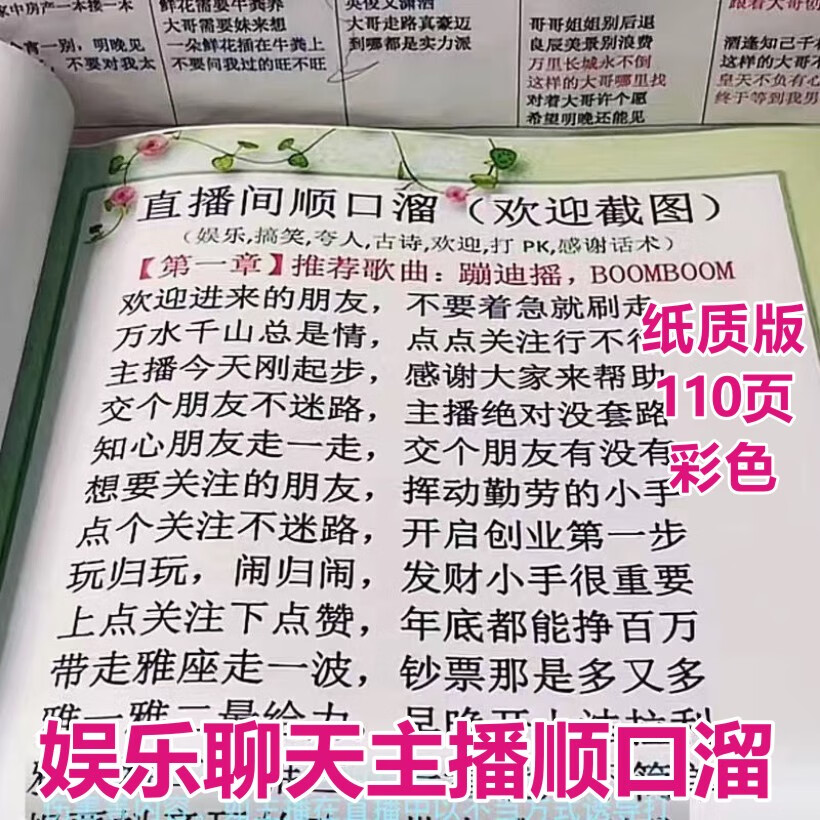 家中房产一本接一本
鲜花需要牛粪养
英俊又潇洒
大哥需要妹来想
大哥走路真豪迈
一朵鲜花插在牛粪上
到哪都是实力派
不要问我过的旺不旺
宵一别，明晚见
不要对我太
哥哥姐姐别后退
良辰美景别浪费
万里长城永不倒
这样的大哥哪里找
对着大哥许个愿
希望明晚还能见
酒逢知己千
这样的大哥不
皇天不负有心
终于等到我男
直播间顺口溜（欢迎截图）
（娱乐,搞笑,夸人,古诗,欢迎,打 PK,感谢话术）
【第一章】推荐歌曲：蹦迪摇，BOOMBOOM
欢迎进来的朋友，不要着急就刷走
万水千山总是情，点点关注行不行
主播今天刚起步，感谢大家来帮助
交个朋友不迷路，主播绝对没套路
知心朋友走一走，交个朋友有没有
想要关注的朋友，挥动勤劳的小手
点个关注不迷路，开启创业第一步
玩归玩，闹归闹，发财小手很重要
上点关注下点赞，年底都能挣百万
带走雅座走一波，钞票那是多又多
纸质版
110页
彩色
娱乐聊天主播顺口溜